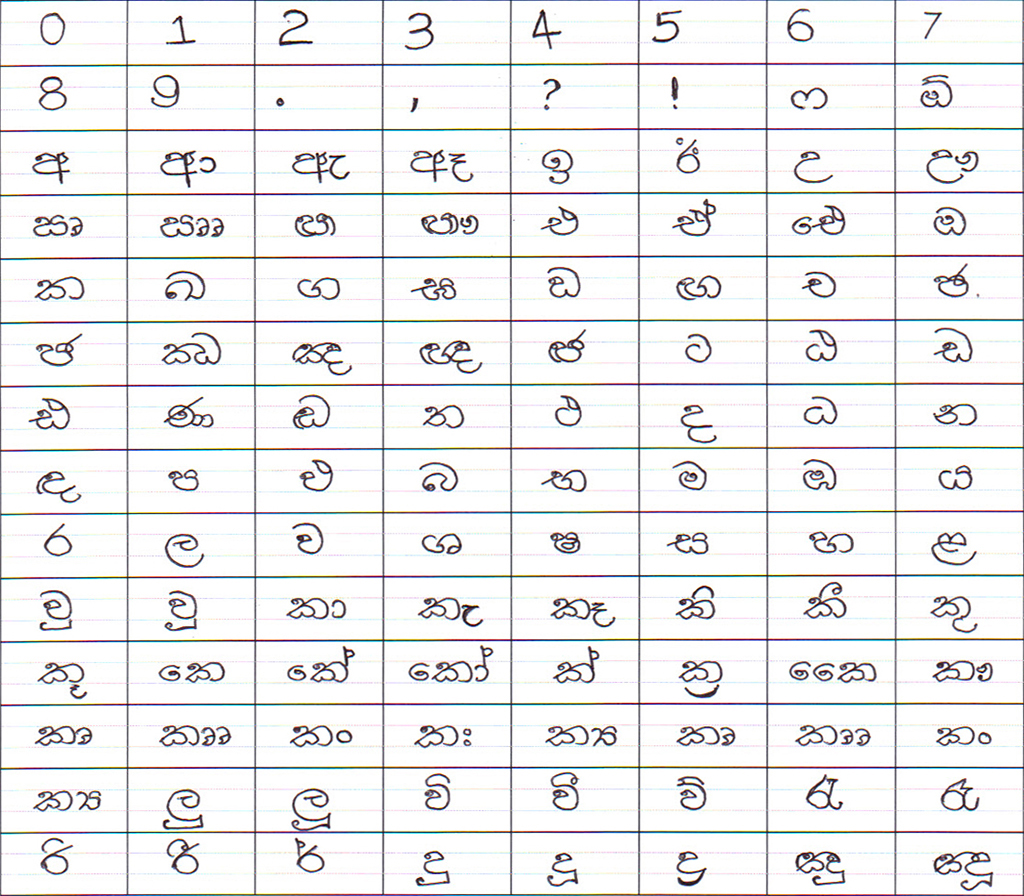 0 1 2 3 4 5 6 7
8 9 . , ? ! ෆ ඕ
අ ආ ඇ ඈ ඉ ඊ උ ඌ
ඍ ඎ ඏ ඐ එ ඒ ඓ ඔ
ක ඛ ග ඝ ඞ ඟ ච ඡ
ජ ඣ ඤ ඥ ඦ ට ඨ ඩ
ඪ ණ ඬ ත ථ ද ධ න
ඳ ප ඵ බ භ ම ඹ ය
ර ල ව ශ ෂ ස හ ළ
වු වූ කා කැ කෑ කි කී කු
කූ කෙ කේ කෝ ක් ක්‍ර කෛ කෟ
කෘ කෲ කං කඃ ක්‍ය කෘ කෲ කං
ක්‍ය ලු ලූ වි වී ව් රැ රෑ
රි රී ර් දු දූ ද්‍ර ඤු ඤූ